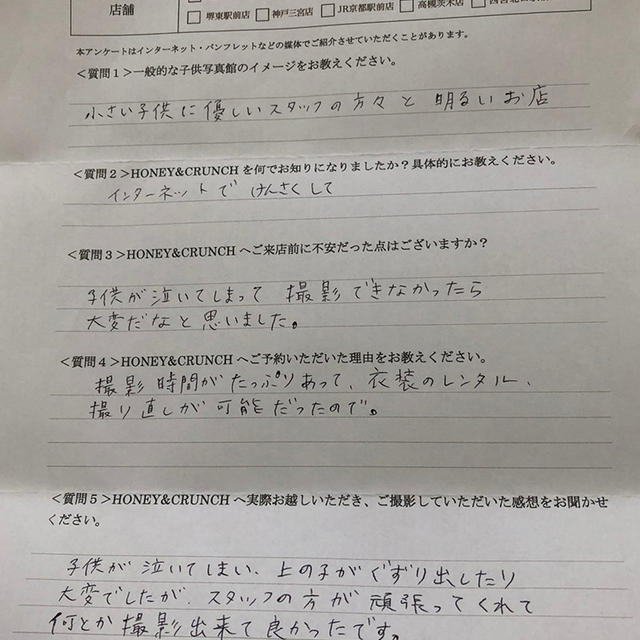 店舗
堺東駅前店 神戸三宮店 JR京都駅前店 高槻茨木店
本アンケートはインターネット・パンフレットなどの媒体でご紹介させていただくことがあります。
＜質問１＞一般的な子供写真館のイメージをお教えください。
小さい子供に優しいスタッフの方々と 明るいお店
＜質問２＞HONEY&CRUNCH を何でお知りになりましたか？具体的にお教えください。
インターネットで けんさくして
＜質問３＞HONEY&CRUNCH へご来店前に不安だった点はございますか？
子供が泣いてしまって 撮影できなかったら
大変だなと思いました。
＜質問４＞HONEY&CRUNCH へご予約いただいた理由をお教えください。
撮影時間がたっぷりあって、衣装のレンタル、
撮り直しが可能だったので。
＜質問５＞HONEY&CRUNCH へ実際お越しいただき、ご撮影していただいた感想をお聞かせ
ください。
子供が泣いてしまい、上の子がぐずり出したり
大変でしたが、スタッフの方が頑張ってくれて
何とか撮影出来て良かったです。